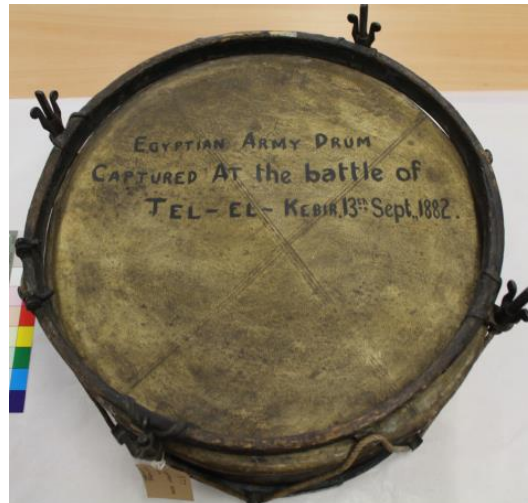 EGYPTIAN ARMY DRUM
CAPTURED AT the battle of
TEL-EL-KEBIR, 13th Sept., 1882.